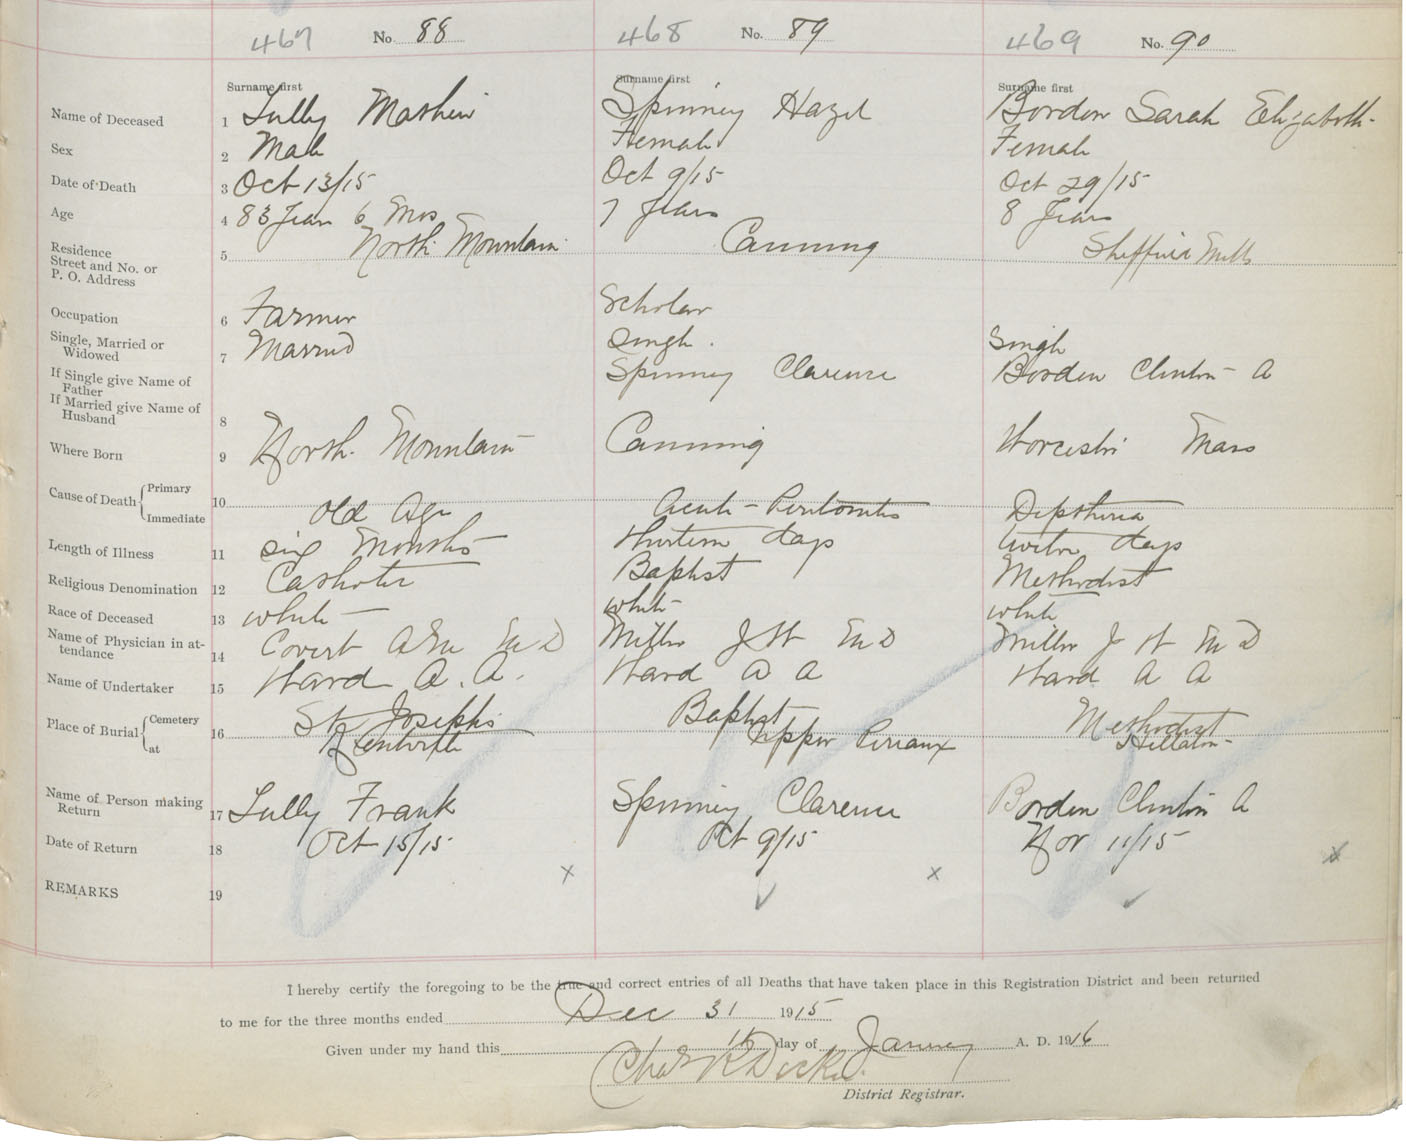 467 No. 88 468 No. 89 469 No. 90
Surname first Surname first Surname first
Name of Deceased 1 Lully Mathew Spinney Hazel Borden Sarah Elizabeth
Sex 2 Male Female Female
Date of Death 3 Oct 13/15 Oct 9/15 Oct 29/15
Age 4 83 Years 6 Mos 7 Years 8 Years
Residence
Street and No. or
P. O. Address 5 North Mountain Canning Sheffield Mills
Occupation 6 Farmer Scholar
Single, Married or
Widowed 7 Married Single. Single
If Single give Name of
Father Spinney Clarence Borden Clinton A
If Married give Name of
Husband 8
Where Born 9 North Mountain Canning Worcester Mass
Cause of Death { Primary
Immediate 10 Old Age Acute Peritonitis Diptheria
Length of Illness 11 six Months thirteen days twelve days
Religious Denomination 12 Catholic Baptist Methodist
Race of Deceased 13 white white white
Name of Physician in at-
tendance 14 Covert A M M D Miller J W M D Miller J W M D
Name of Undertaker 15 Ward A. A. Ward A A Ward A A
Place of Burial { Cemetery
at 16 St Josephs Baptist Methodist
Kentville Upper Hillaton
Name of Person making
Return 17 Lully Frank Spinney Clarence Borden Clinton A
Date of Return 18 Oct 15/15 Oct 9/15 Nov 11/15
x x x
REMARKS 19
I hereby certify the foregoing to be the true and correct entries of all Deaths that have taken place in this Registration District and been returned
to me for the three months ended Dec 31 1915
Given under my hand this day of January A. D. 1916
District Registrar.